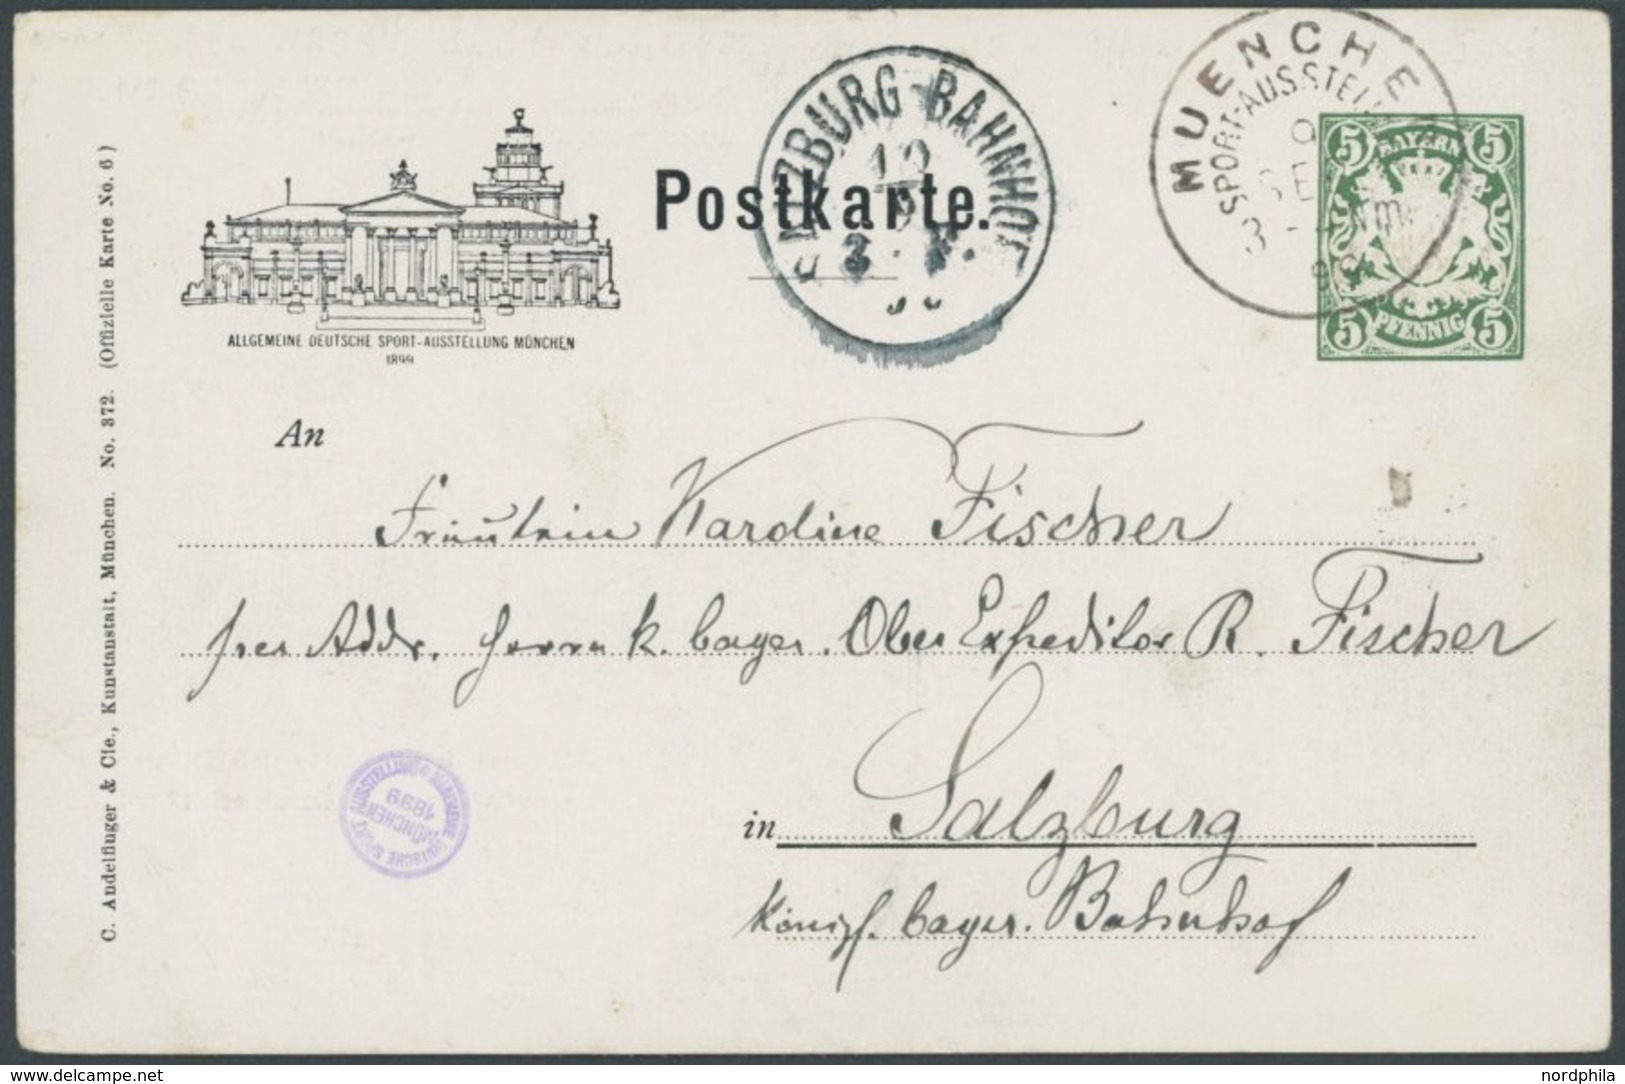 MUENCHE
SPORT-AUSSTELL
9
SE
3 - 4 Nm
BAYERN
5 5
5 PFENNIG 5
SALZBURG BAHNHOF
Postkarte.
ALLGEMEINE DEUTSCHE SPORT-AUSSTELLUNG MÜNCHEN
1899
C. Andelfinger & Cie., Kunstanstalt, München. No. 372. (Offizielle Karte No. 6)
An
Fräulein Karoline Fischer
per Addr. Herrn k. bayer. Ober Expeditor R. Fischer
in Salzburg
Königl. bayer. Bahnhof
ALLGEMEINE DEUTSCHE SPORT AUSSTELLUNG
MÜNCHEN
1899
www.delcampe.net
nordphila